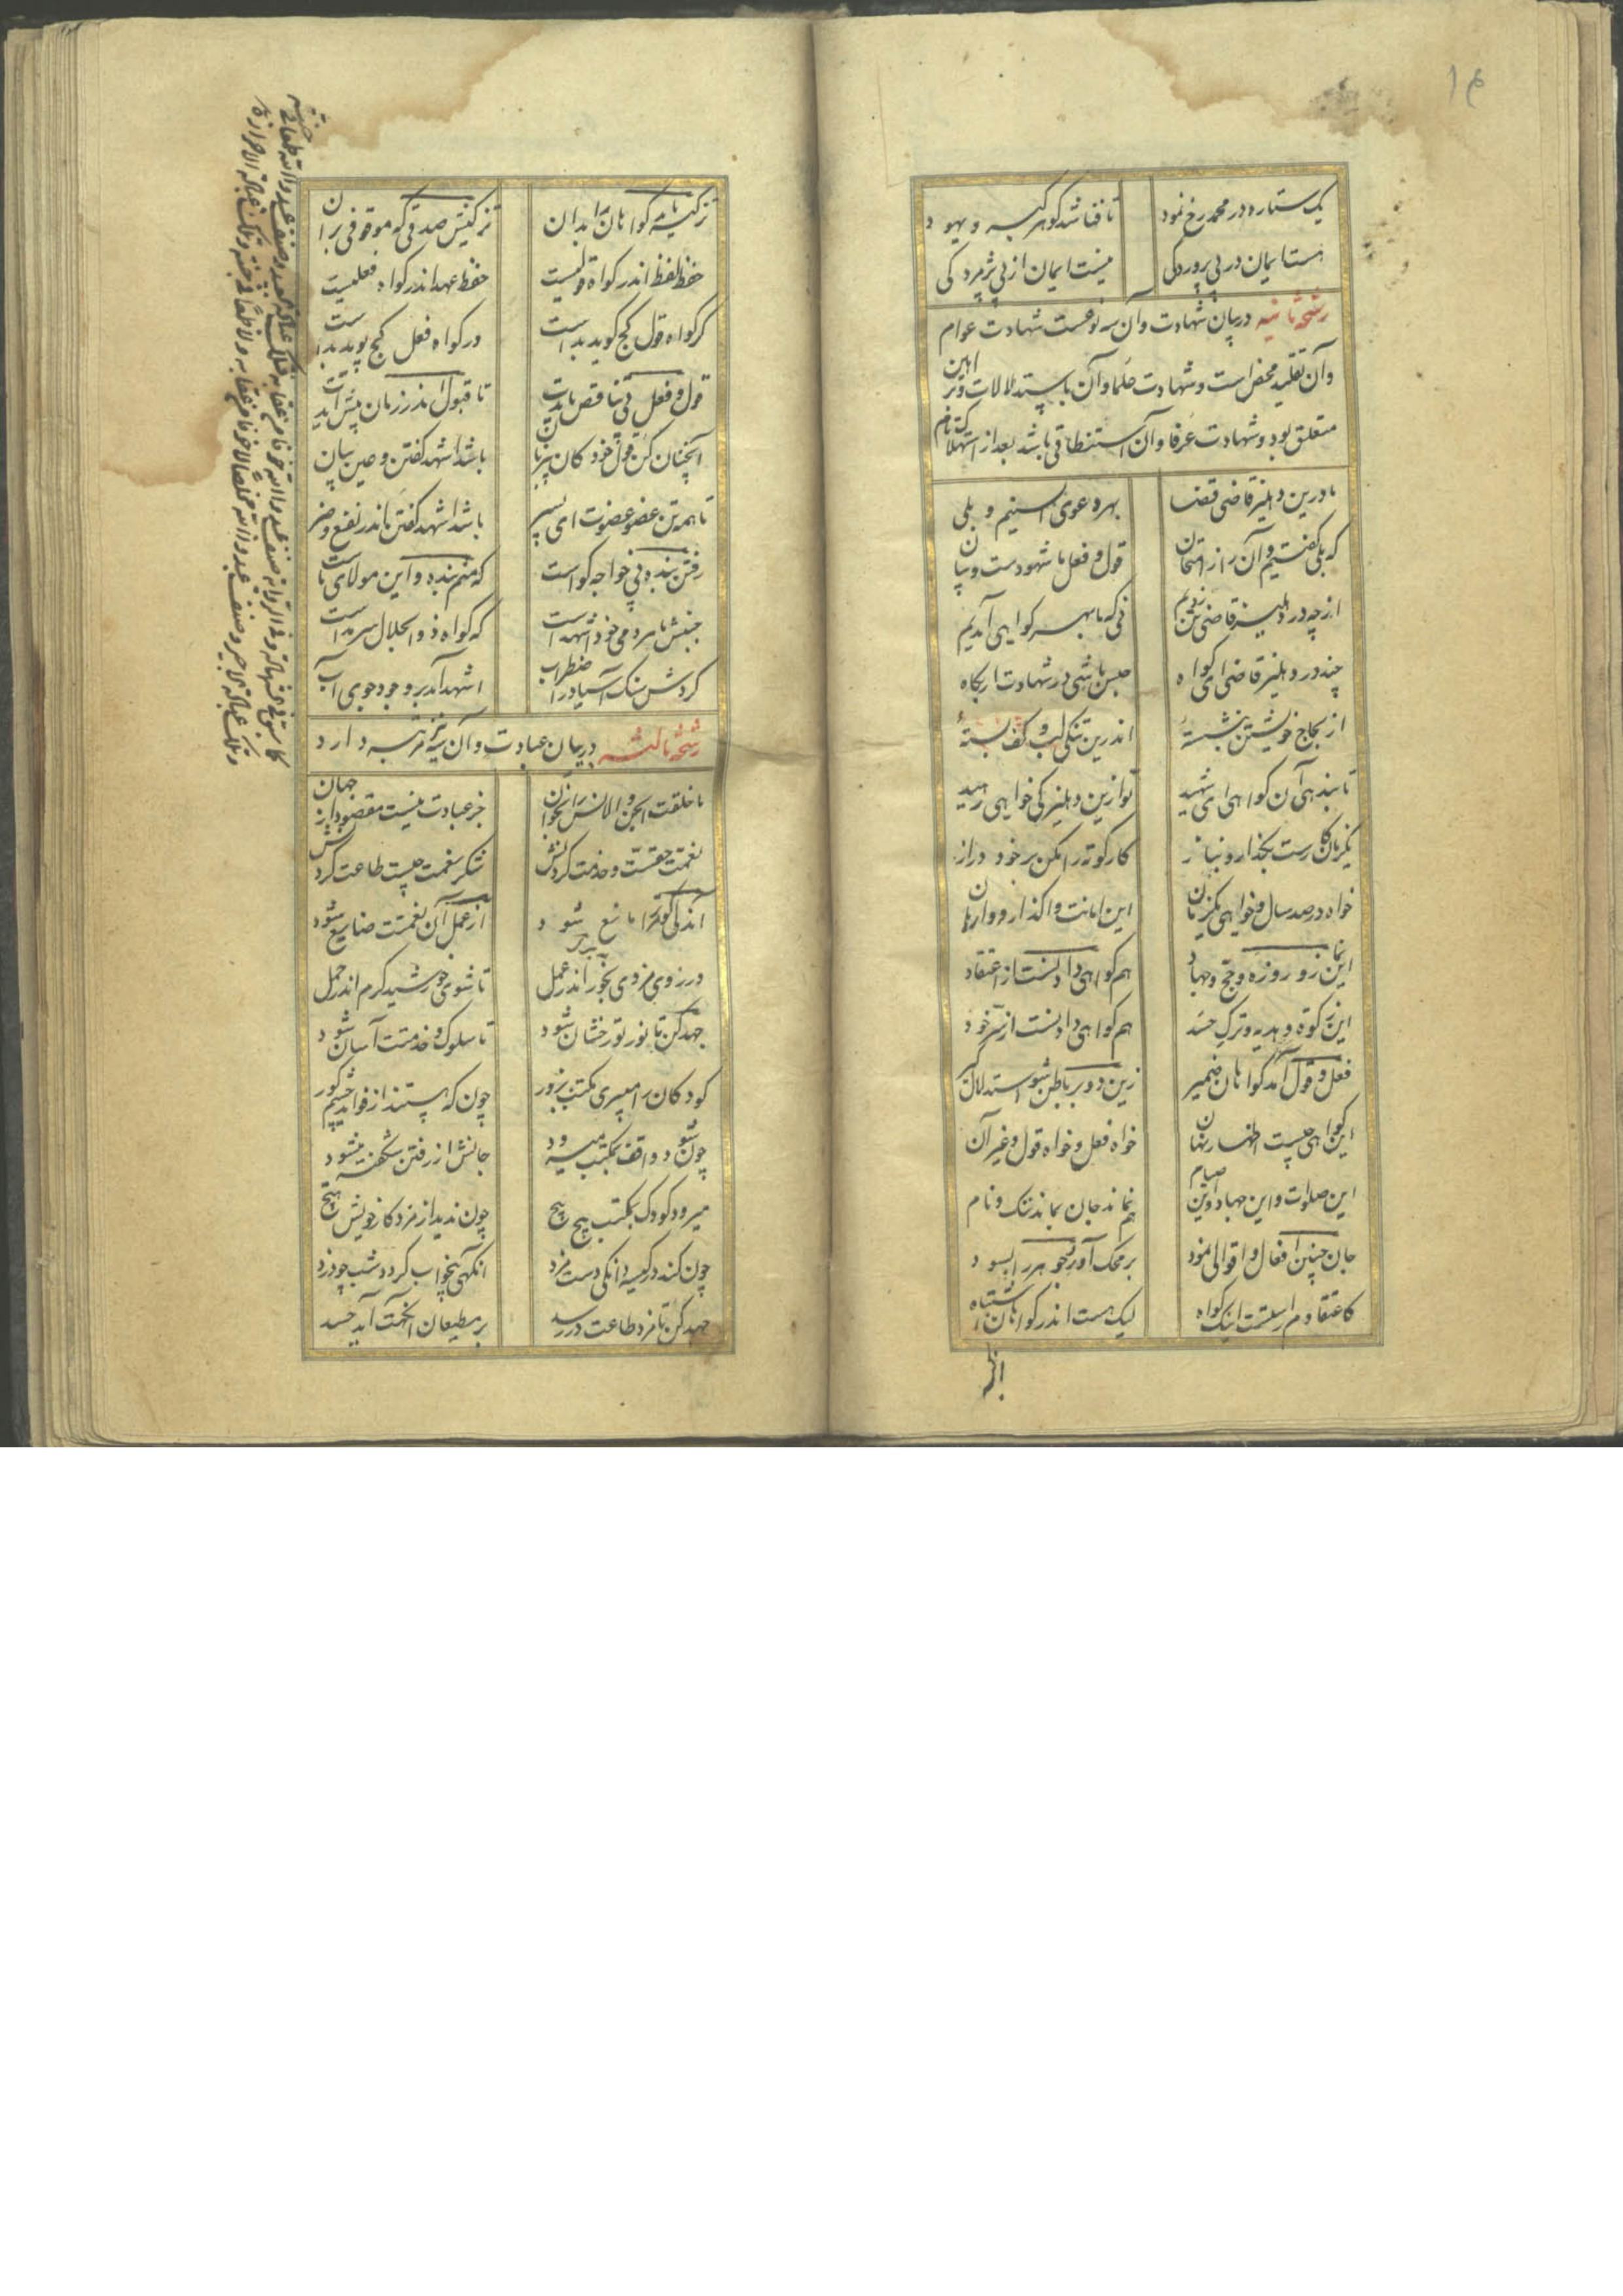 ۱۴
یک ستاره در محمد رخ نمود تا فنا شد کوهر کبر و یهود
هست ایمان در پی پروردکی نیست ایمان از پی پژمردکی
رشحه ثانیه در بیان شهادت وآن سه نوعست شهادت عوام
وآن تقلید محض است و شهادت علما وآن باستدلالات وبراهین
متعلق بود و شهادت عرفا وآن استنطاقی باشد بعد از استهلاک تام
ما درین دهلیز قاضی قضا بهر دعوی الستیم و بلی
که بلی کفتیم وآن را ز امتحان قول و فعل ما شهودست و بیان
از چه در دهلیز قاضی تن زدیم نی که ما بهر کواهی آمدیم
چند در دهلیز قاضی ای کواه حبس باشی در شهادت از پکاه
از لجاج خویشتن بنشسته اندرین تنکی لب و کف بسته
تا بندهی آن کواهی ای شهید تو ازین دهلیز کی خواهی رهید
یکزمان کارست بکذار و بتاز کار کوته را مکن بر خود دراز
خواه در صد سال و خواهی یکزمان این امانت واکذار و وارهان
این نماز و روزه و حج و جهاد هم کواهی دادنست از اعتقاد
این زکوة و هدیه و ترک حسد هم کواهی دادنست از سر خود
فعل و قول آمد کواهان ضمیر زین دو بر باطن تو استدلال کیر
این کواهی چیست اظهار نهان خواه فعل و خواه قول و غیر آن
این صلوات و این جهاد و این صیام هم نماند جان بماند نیک نام
جان چنین افعال و اقوالی نمود بر محک آور جوهر را بسود
کاعتقادم راستست اینک کواه لیک هست اندر کواهان اشتباه
تزکیه باید کواهان را بدان تزکیتش صدقی که موقوفی بران
حفظ لفظ اندر کواه قولیست حفظ عهد اندر کواه فعلیست
کر کواه قول کج کوید بدست ور کواه فعل کج پوید بدست
قول و فعل بی تناقض بایدت تا قبول اندر زمان پیش آیدت
باشد اشهد کفتن و عین بیان
تا همه تن عضو عضوت ای پسر باشد اشهد کفتن اندر نفع و ضر
رفتن بنده پی خواجه کواست که منم بنده و این مولای ماست
جنبش ما هر دمی خود اشهدست که کواه ذوالجلال سرمدست
کردش سنک آسیا در اضطراب اشهد آمد بر وجود جوی آب
رشحه ثالثه در بیان عبادت وآن نیز سه مرتبه دارد
ما خلقت الجن والانس را بخوان جز عبادت نیست مقصود از جهان
شکر نعمت چیست طاعت کردنش
تا شوی خورشید کرم اندر حمل
جهد کن تا نور تو رخشان شود تا سلوک و خدمتت آسان شود
کودکان را میبری مکتب بزور چون که هستند از فواید چشم کور
چون شود واقف بمکتب میدود جانش از رفتن شکفته میشود
میرود کودک بمکتب پیچ پیچ چون ندید از مزد کار خویش هیچ
چون کند در کیسه دانکی دست مزد انکهی بیخواب کردد شب چو دزد
جهد کن تا مزد طاعت در رسد بر مطیعان آنکهت آید حسد